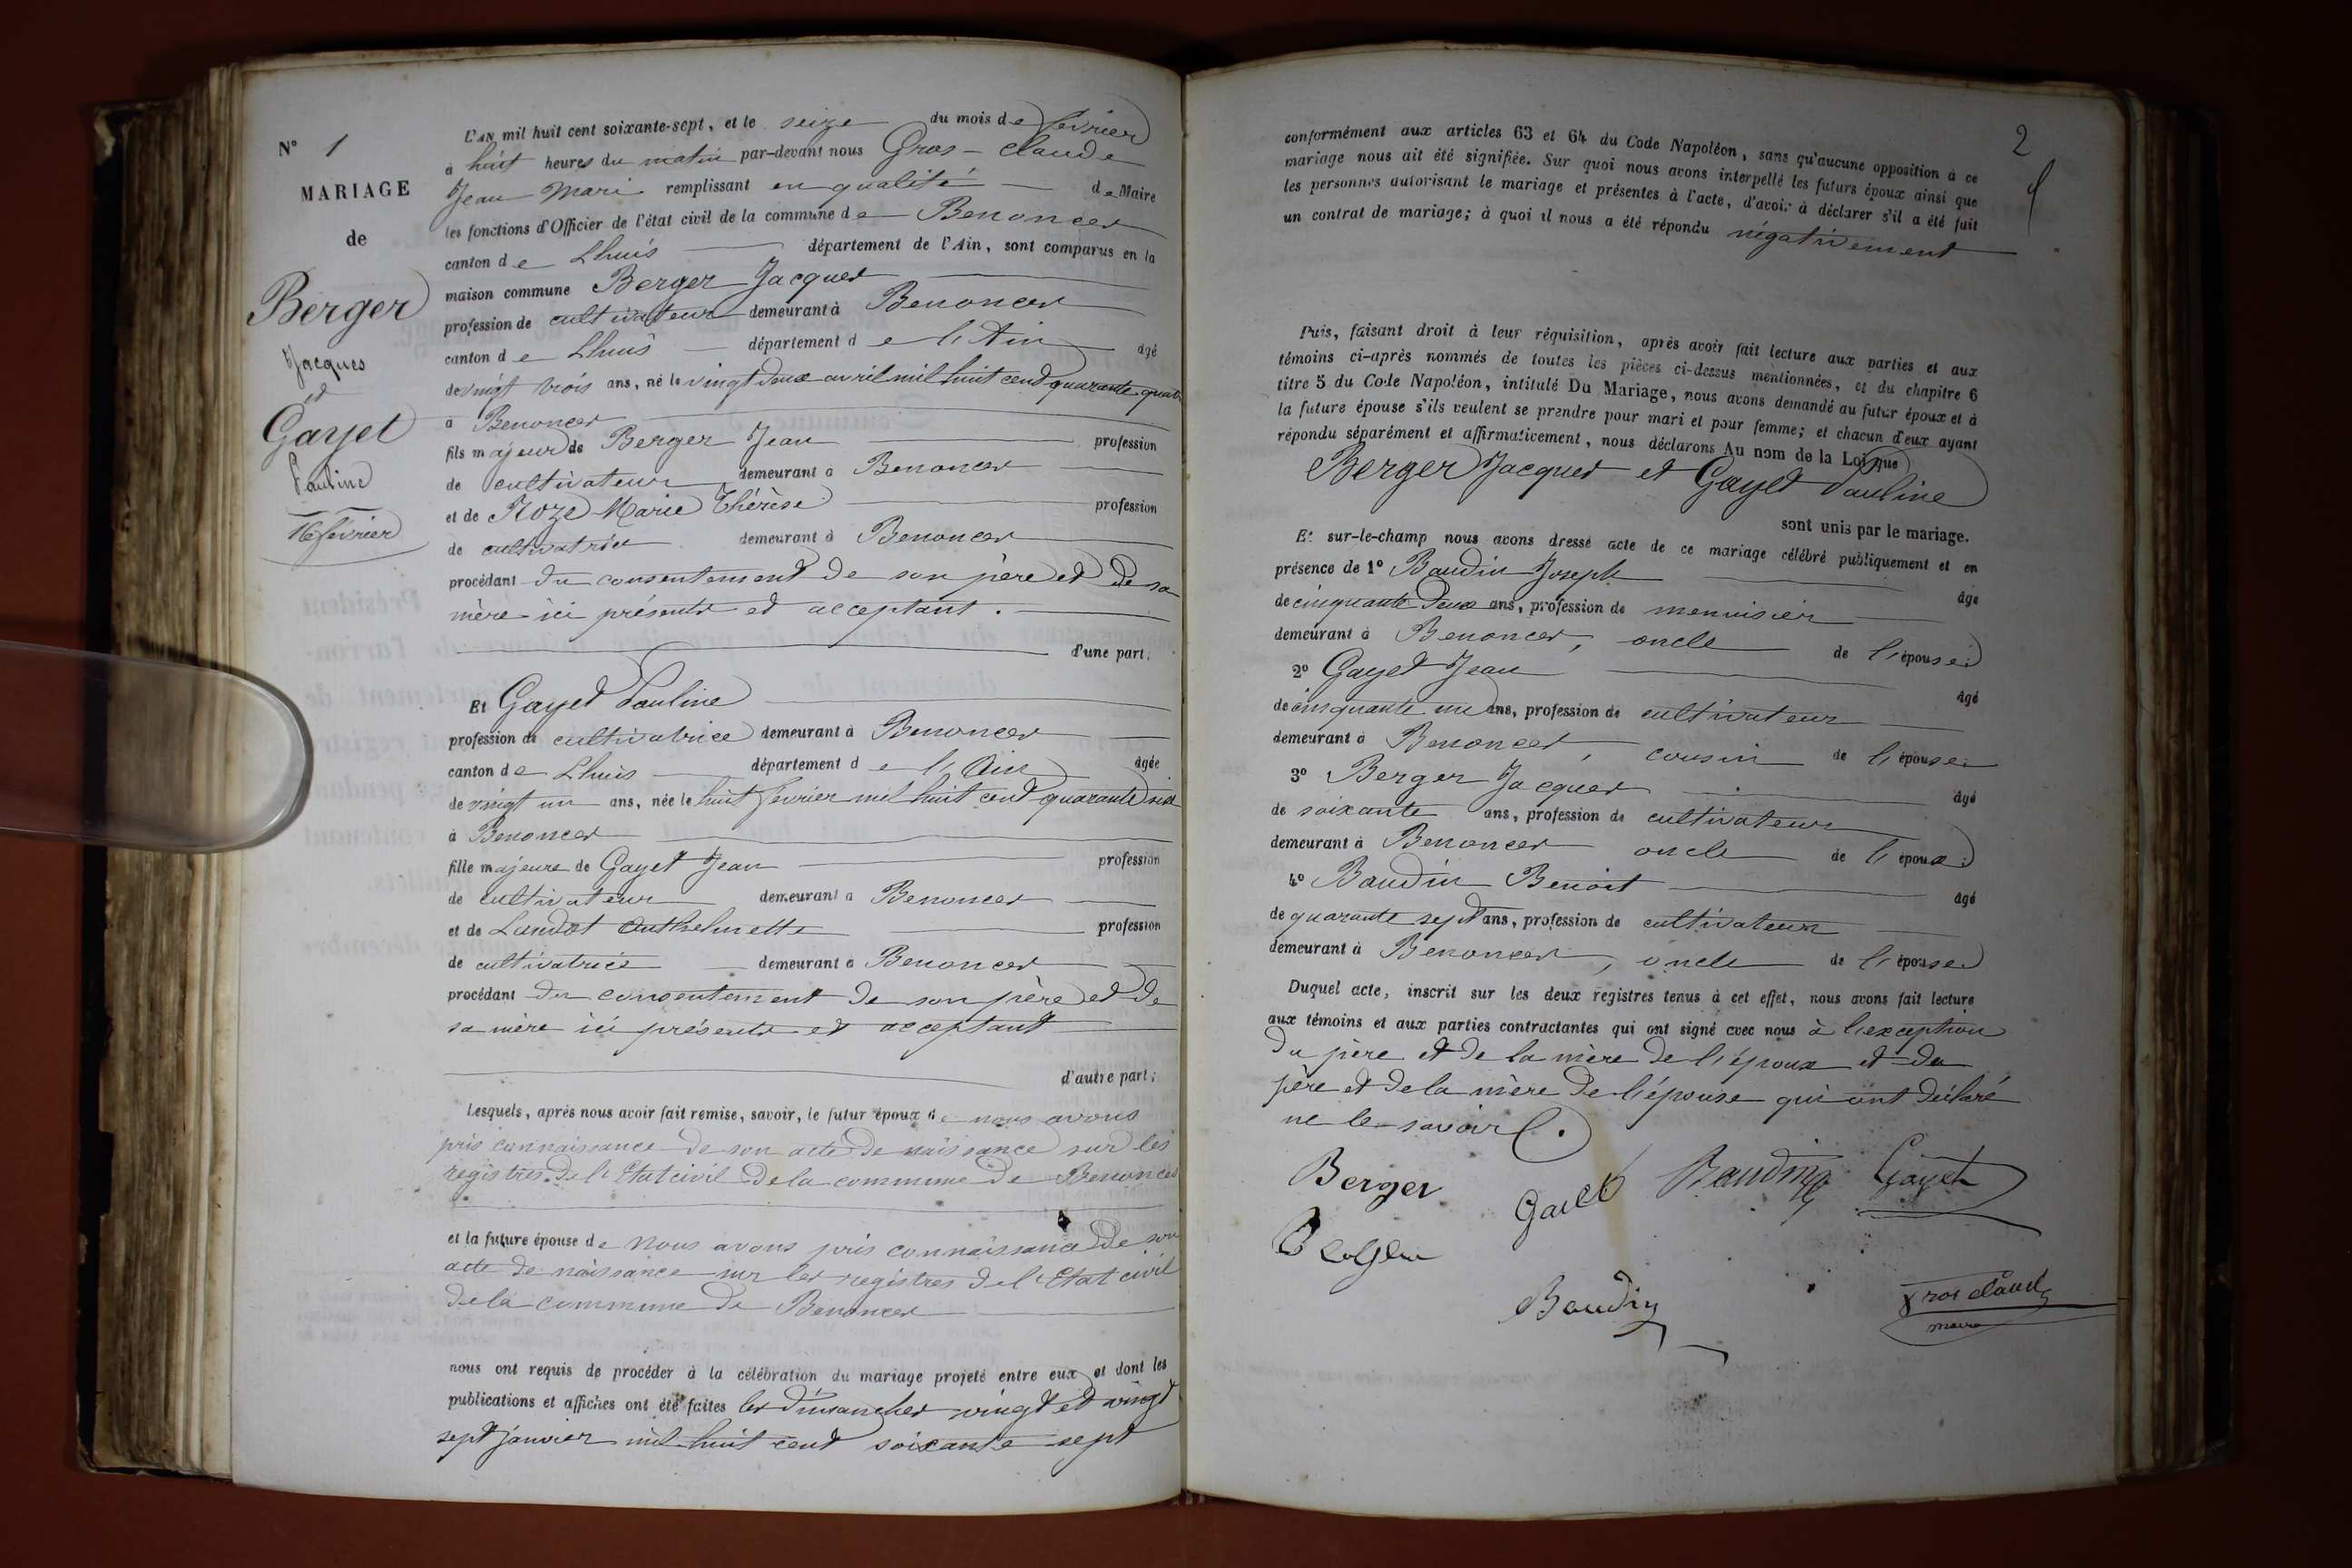 N° 1
MARIAGE
de
Berger
Jacques
et
Gayet
Pauline
16 février
L'AN mil huit cent soixante-sept, et le seize du mois de février
à huit heures du matin par-devant nous Gros-Claude
Jean Mari remplissant en qualité de Maire
les fonctions d'Officier de l'état civil de la commune de Benonces
canton de Lhuis département de l'Ain, sont comparus en la
maison commune Berger Jacques
profession de cultivateur demeurant à Benonces
canton de Lhuis département de l'Ain âgé
de vingt trois ans, né le vingt deux avril mil huit cent quarante quatre
à Benonces
fils majeur de Berger Jean profession
de cultivateur demeurant à Benonces
et de Roze Marie Thérèse profession
de cultivatrice demeurant à Benonces
procédant du consentement de son père et de sa
mère ici présents et acceptant.
d'une part;
Et Gayet Pauline
profession de cultivatrice demeurant à Benonces
canton de Lhuis département de l'Ain âgée
de vingt un ans, née le huit février mil huit cent quarante six
à Benonces
fille majeure de Gayet Jean profession
de cultivateur demeurant à Benonces
et de Landot Anthelmette profession
de cultivatrice demeurant à Benonces
procédant du consentement de son père et de
sa mère ici présents et acceptant
d'autre part;
Lesquels, après nous avoir fait remise, savoir, le futur époux de nous avons
pris connaissance de son acte de naissance sur les
registres de l'Etat civil de la commune de Benonces
et la future épouse de nous avons pris connaissance de son
acte de naissance sur les registres de l'Etat civil
de la commune de Benonces
nous ont requis de procéder à la célébration du mariage projeté entre eux et dont les
publications et affiches ont été faites les dimanches vingt et vingt
sept janvier mil huit cent soixante sept
2
conformément aux articles 63 et 64 du Code Napoléon, sans qu'aucune opposition à ce
mariage nous ait été signifiée. Sur quoi nous avons interpellé les futurs époux ainsi que
les personnes autorisant le mariage et présentes à l'acte, d'avoir à déclarer s'il a été fait
un contrat de mariage; à quoi il nous a été répondu négativement
Puis, faisant droit à leur réquisition, après avoir fait lecture aux parties et aux
témoins ci-après nommés de toutes les pièces ci-dessus mentionnées, et du chapitre 6
titre 5 du Code Napoléon, intitulé Du Mariage, nous avons demandé au futur époux et à
la future épouse s'ils veulent se prendre pour mari et pour femme; et chacun d'eux ayant
répondu séparément et affirmativement, nous déclarons Au nom de la Loi que
Berger Jacques et Gayet Pauline
sont unis par le mariage.
Et sur-le-champ nous avons dressé acte de ce mariage célébré publiquement et en
présence de 1° Baudin Joseph âgé
de cinquante deux ans, profession de menuisier
demeurant à Benonces, oncle de l'épouse;
2° Gayet Jean âgé
de cinquante un ans, profession de cultivateur
demeurant à Benonces, cousin de l'épouse;
3° Berger Jacques âgé
de soixante ans, profession de cultivateur
demeurant à Benonces oncle de l'époux;
4° Baudin Benoit âgé
de quarante sept ans, profession de cultivateur
demeurant à Benonces, oncle de l'épouse
Duquel acte, inscrit sur les deux registres tenus à cet effet, nous avons fait lecture
aux témoins et aux parties contractantes qui ont signé avec nous à l'exception
du père et de la mère de l'époux et du
père et de la mère de l'épouse qui ont déclaré
ne le savoir.
Berger Baudin Gayet
Baudin gros claude
maire